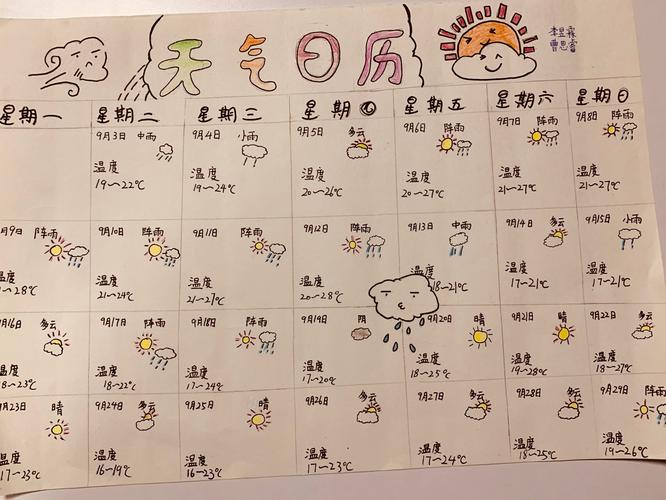 天气日历
李昱霖
曹思睿
星期一 星期二 星期三 星期四 星期五 星期六 星期日
9月3日 中雨
温度
19~22℃
9月4日 小雨
温度
19~24℃
9月5日 多云
温度
20~26℃
9月6日 阵雨
温度
20~27℃
9月7日 阵雨
温度
21~27℃
9月8日 阵雨
温度
21~27℃
月9日 阵雨
温度
~28℃
9月10日 阵雨
温度
21~24℃
9月11日 阵雨
温度
21~27℃
9月12日 阵雨
温度
20~28℃
9月13日 中雨
温度
18~21℃
9月14日 多云
温度
17~21℃
9月15日 小雨
温度
17~21℃
月16日 多云
温度
18~23℃
9月17日 阵雨
温度
18~22℃
9月18日 阵雨
温度
17~24℃
9月19日 阴
温度
17~20℃
9月20日 晴
温度
18~25℃
9月21日 晴
温度
19~28℃
9月22日 多云
温度
18~27℃
9月23日 晴
温度
17~23℃
9月24日 多云
温度
16~19℃
9月25日 晴
温度
16~23℃
9月26日 多云
温度
17~23℃
9月27日 多云
温度
17~24℃
9月28日 多云
温度
18~25℃
9月29日 阵雨
温度
19~26℃